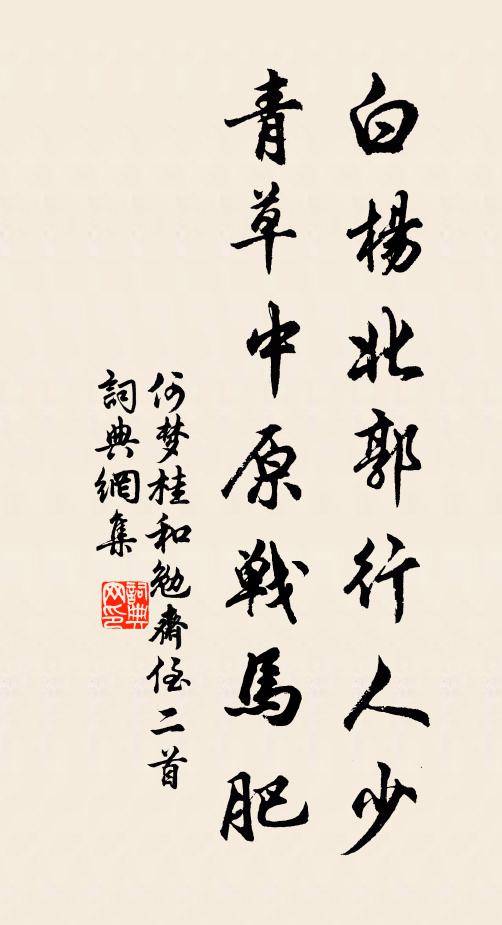 白楊北郭行人少
青草中原戰馬肥
何梦桂和勉齋侄二首
詞典網集
詞典网印